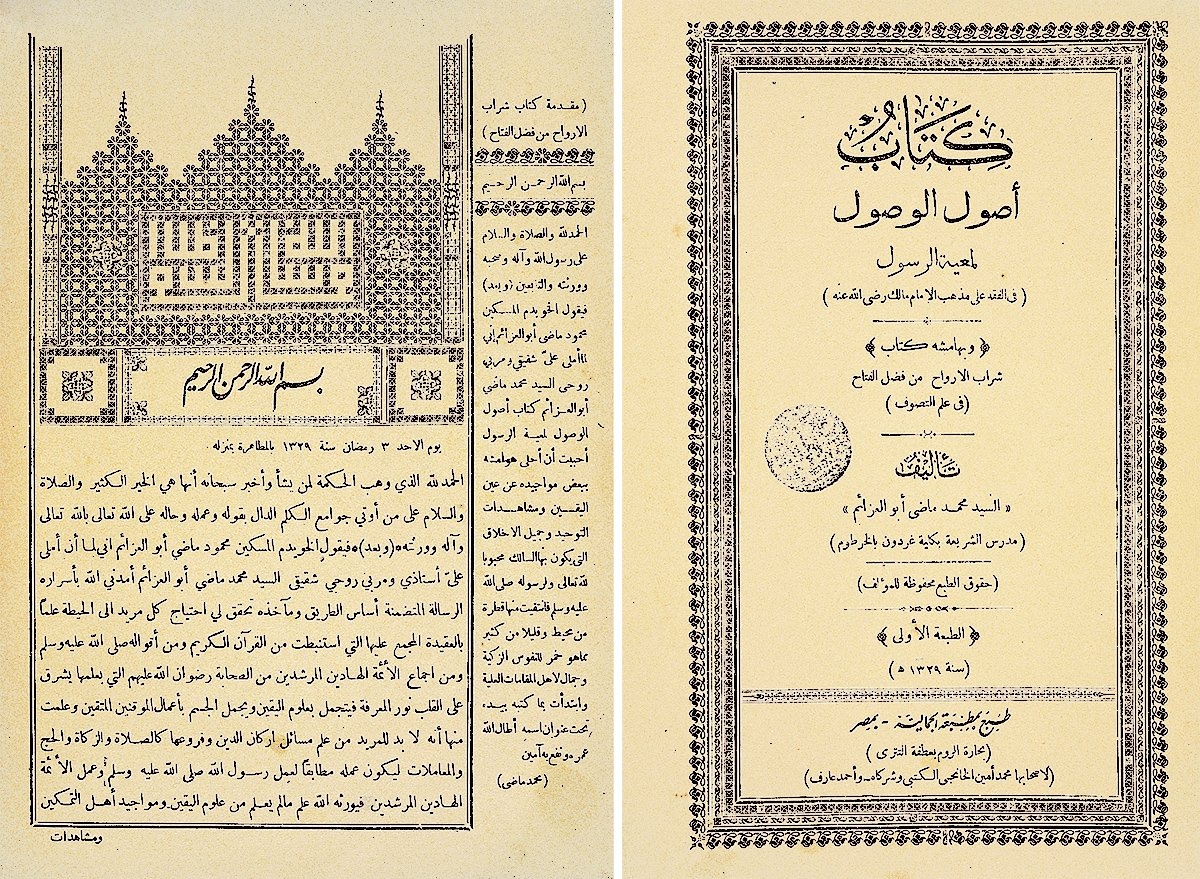 كتاب
أصول الوصول
لمعية الرسول
( في الفقه على مذهب الامام مالك رضى الله عنه )
﴿ وبهامشه كتاب ﴾
شراب الارواح من فضل الفتاح
( فى علم التصوف )
تأليف
« السيد محمد ماضى أبو العزائم »
( مدرس الشريعة بكلية غردون بالخرطوم )
( حقوق الطبع محفوظة للمؤلف )
﴿ الطبعة الأولى ﴾
( سنة ١٣٢٩ ه )
طبع بمطبعة الجمالية - بمصر
( بحارة الروم بعطفة التترى )
( لاصحابها محمد أمين الخانجى الكتبي وشركاه - وأحمد عارف )
بسم الله الرحمن الرحيم
يوم الاحد ٣ رمضان سنة ١٣٢٩ بالمطاهرة بمنزله
الحمد لله الذي وهب الحكمة لمن يشأ وأخبر سبحانه أنها هي الخير الكثير والصلاة
والسلام على من أوتي جوامع الكلم الدال بقوله وعمله وحاله على الله تعالى بالله تعالى
وآله وورثته ﴿وبعد﴾ فيقول الخويدم المسكين محمود ماضي أبو العزائم اني لما أن أملى
عليّ أستاذي ومربي روحي شقيقي السيد محمد ماضي أبو العزائم أمدني الله بأسراره
الرسالة المتضمنة أساس الطريق ومآخذه تحقق لي احتياج كل مريد الى الحيطة علماً
بالعقيدة المجمع عليها التي استنبطت من القرآن الكريم ومن أقواله صلى الله عليه وسلم
ومن اجماع الأئمة الهادين المرشدين من الصحابة رضوان الله عليهم التي بعلمها يشرق
على القلب نور المعرفة فيتجمل بعلوم اليقين ويجمل الجسم بأعمال الموقنين المتقين وعلمت
منها أنه لا بد للمريد من علم مسائل اركان الدين وفروعها كالصلاة والزكاة والحج
والمعاملات ليكون عمله مطابقاً لعمل رسول الله صلى الله عليه وسلم وعمل الأئمة
الهادين المرشدين فيورثه الله علم مالم يعلم من علوم اليقين ومواجيد أهل التمكين
ومشاهدات
( مقدمة كتاب شراب
الارواح من فضل الفتاح )
بسم الله الرحمن الرحيم
الحمد لله والصلاة والسلام
على رسول الله وآله وصحبه
وورثته والتابعين ( وبعد )
فيقول الخويدم المسكين
محمود ماضي أبو العزائم إني
لما أملى عليّ شقيقي ومربي
روحى السيد محمد ماضي
أبو العزائم كتاب أصول
الوصول لمعية الرسول
أحببت أن أحلى هوامشه
ببعض مواجيده عن عين
اليقين ومشاهدات
التوحيد وجميل الاخلاق
التى يكون بها السالك محبوبا
لله تعالى ولرسوله صلى الله
عليه وسلم فاستقيت منها قطرة
من محيط وقليلا من كثير
مما هو خمر للنفوس الزكية
وجمال لاهل المقامات العلية
وابتدأت بما كتبه بيده
تحت عنوان اسمه أطال الله
عمره ونفع به آمين
( محمد ماضى )